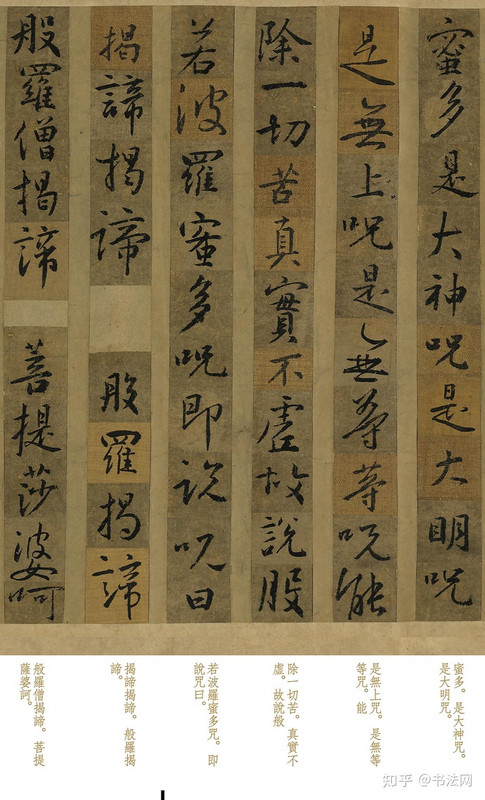 蜜多是大神呪是大明呪
是無上呪是無等等呪能
除一切苦真實不虛故說般
若波羅蜜多呪即說呪曰
揭諦揭諦 般羅揭諦
般羅僧揭諦 菩提莎婆呵
蜜多。是大神咒。
是大明咒。
是無上咒。是無等
等咒。能
除一切苦。真實不
虛。故說般
若波羅蜜多咒。即
說咒曰。
揭諦揭諦。般羅揭
諦。
般羅僧揭諦。菩提
薩婆訶。
知乎 @书法网